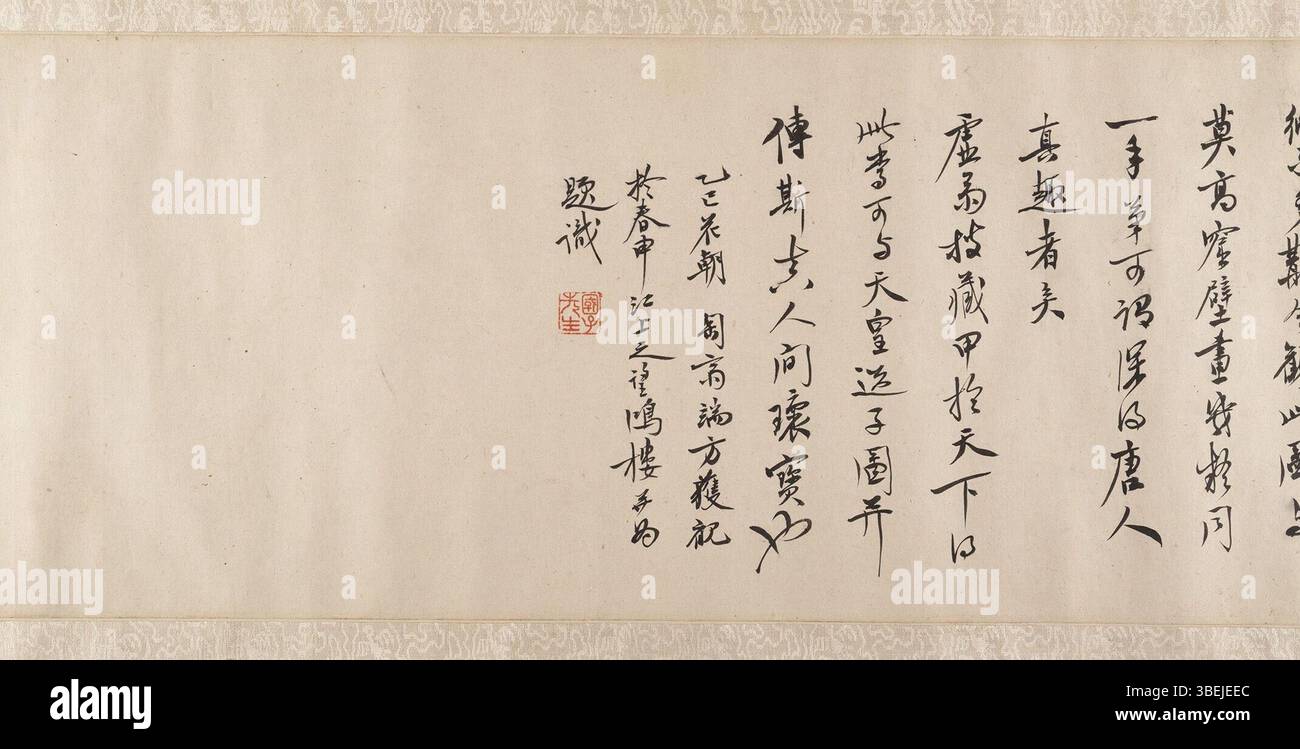 此图
莫高窟壁畫幾疑同
一手筆可謂深得唐人
真趣者矣
虛齋枝藏甲於天下得
此當可与天皇送子圖并
傳斯真人间瓌寶也
乙巳花朝 匋齋端方獲觀
於春申江上之望鴻樓并为
题識
alamy
Image ID: 3BEJEEC
www.alamy.com